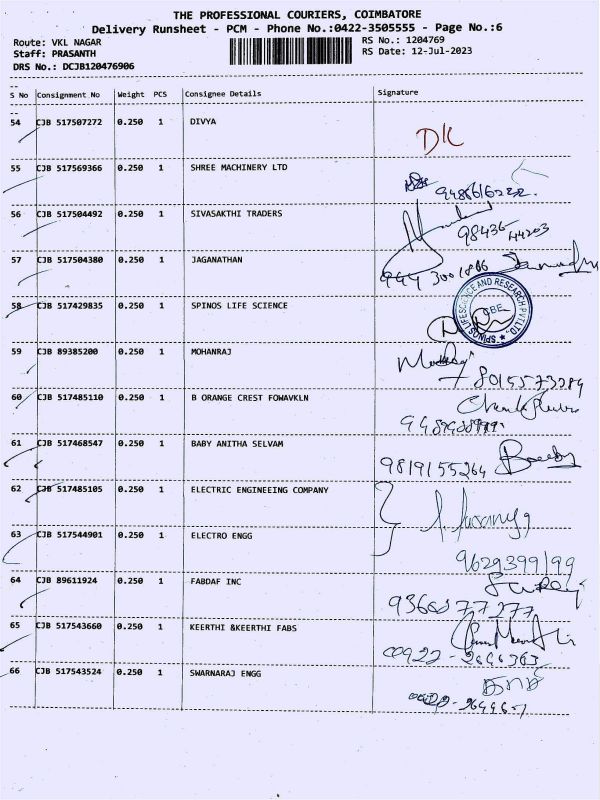 THE PROFESSIONAL COURIERS, COIMBATORE
Delivery Runsheet - PCM - Phone No.:0422-3505555 - Page No.:6
Route: VKL NAGAR
RS No.: 1204769
Staff: PRASANTH
RS Date: 12-Jul-2023
DRS No.: DCJB120476906
S No Consignment No Weight PCS Consignee Details Signature
54 CJB 517507272 0.250 1 DIVYA
DK
55 CJB 517569366 0.250 1 SHREE MACHINERY LTD
56 CJB 517504492 0.250 1 SIVASAKTHI TRADERS
98436 44203
57 CJB 517504380 0.250 1 JAGANATHAN
58 CJB 517429835 0.250 1 SPINOS LIFE SCIENCE
SPINOS LIFE SCIENCE AND RESEARCH PVT LTD.,
CBE
59 CJB 89385200 0.250 1 MOHANRAJ
60 CJB 517485110 0.250 1 B ORANGE CREST FOWAVKLN
61 CJB 517468547 0.250 1 BABY ANITHA SELVAM
9819155264
62 CJB 517485105 0.250 1 ELECTRIC ENGINEEING COMPANY
63 CJB 517544901 0.250 1 ELECTRO ENGG
9629399199
64 CJB 89611924 0.250 1 FABDAF INC
9360877277
65 CJB 517543660 0.250 1 KEERTHI &KEERTHI FABS
66 CJB 517543524 0.250 1 SWARNARAJ ENGG